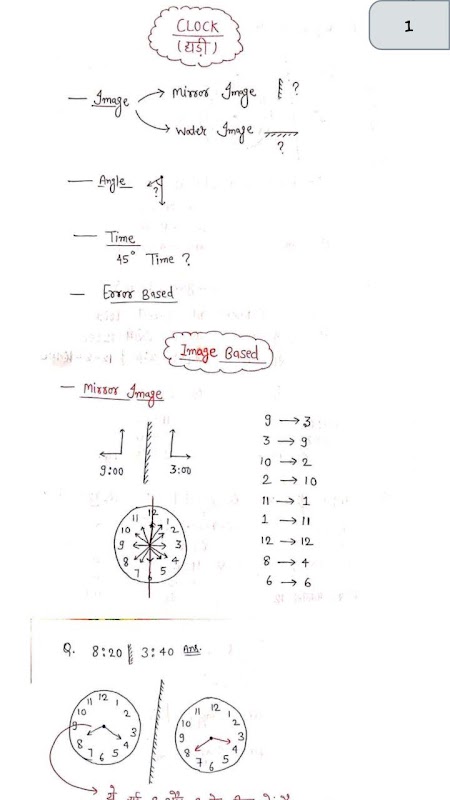 1
CLOCK
(घड़ी)
— Image → Mirror Image ?
→ Water Image
?
— Angle ?
— Time
45° Time ?
— Error Based
Image Based
— Mirror Image
9:00 3:00
9 → 3
3 → 9
10 → 2
2 → 10
11 → 1
1 → 11
12 → 12
8 → 4
6 → 6
12 1 2 3 4 5 6 7 8 9 10 11
Q. 8:20 | 3:40 Ans.
12 1 2 3 4 5 6 7 8 9 10 11
12 1 2 3 4 5 6 7 8 9 10 11